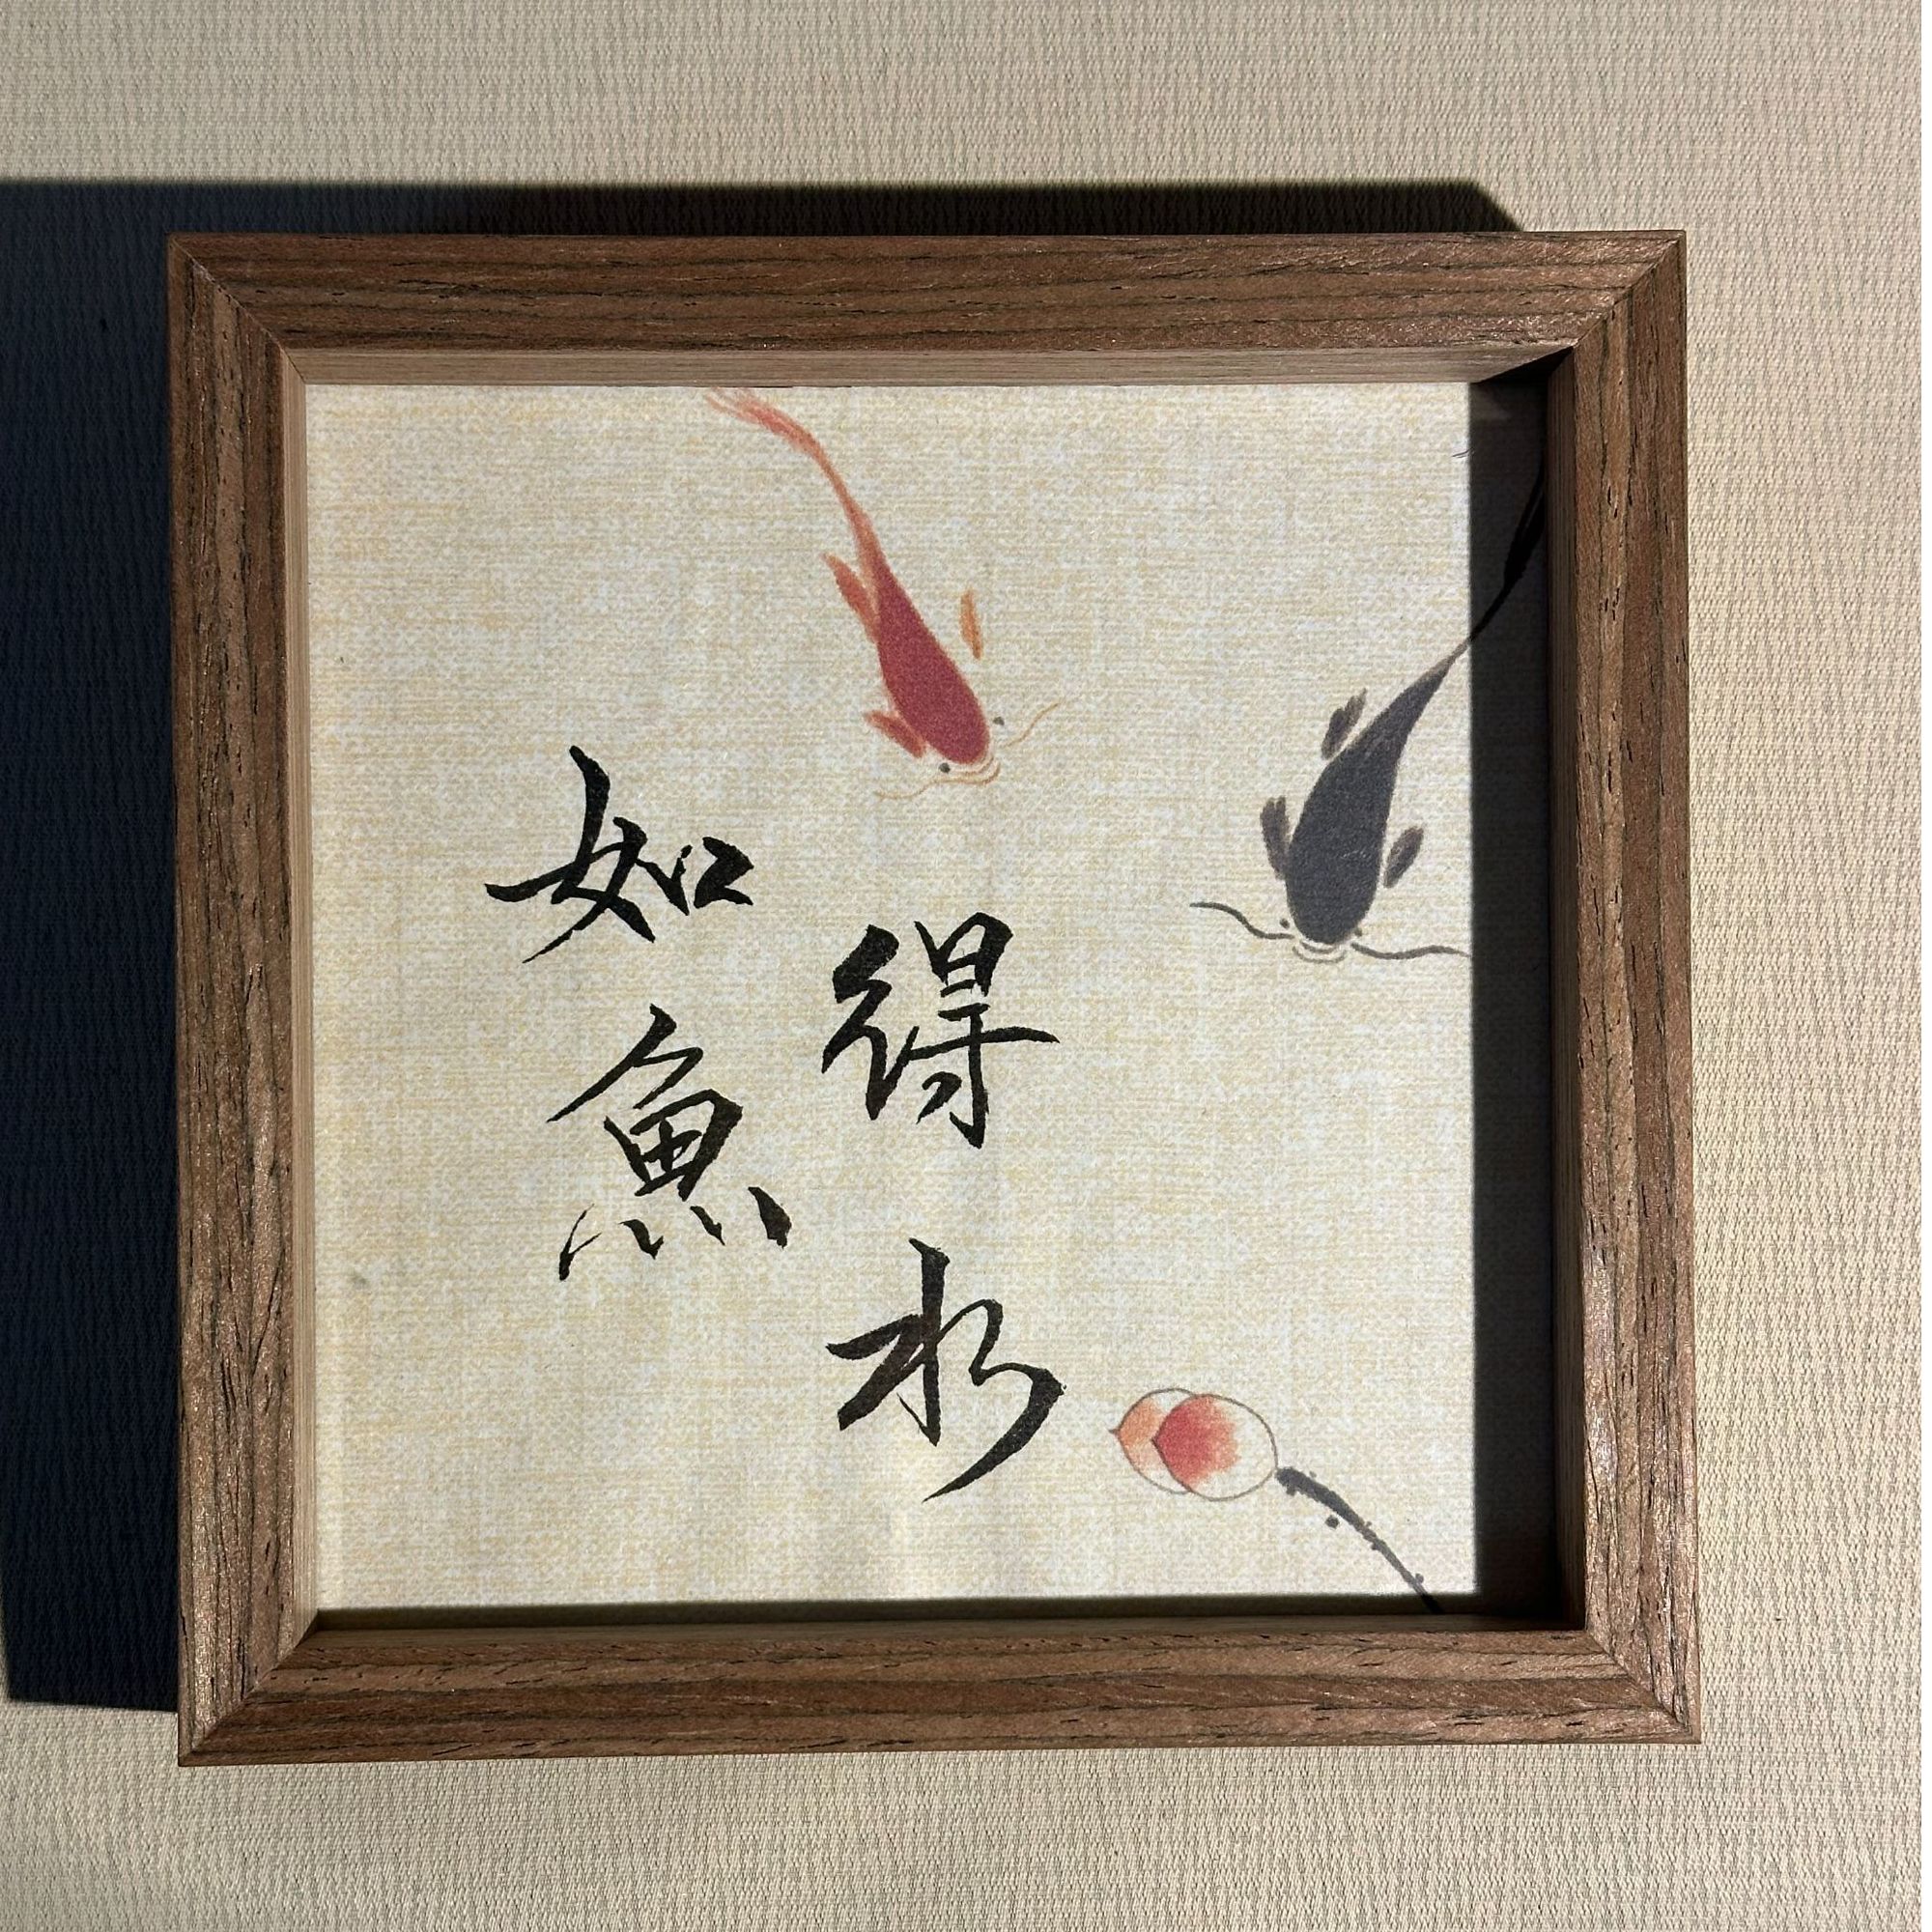 如魚
得水